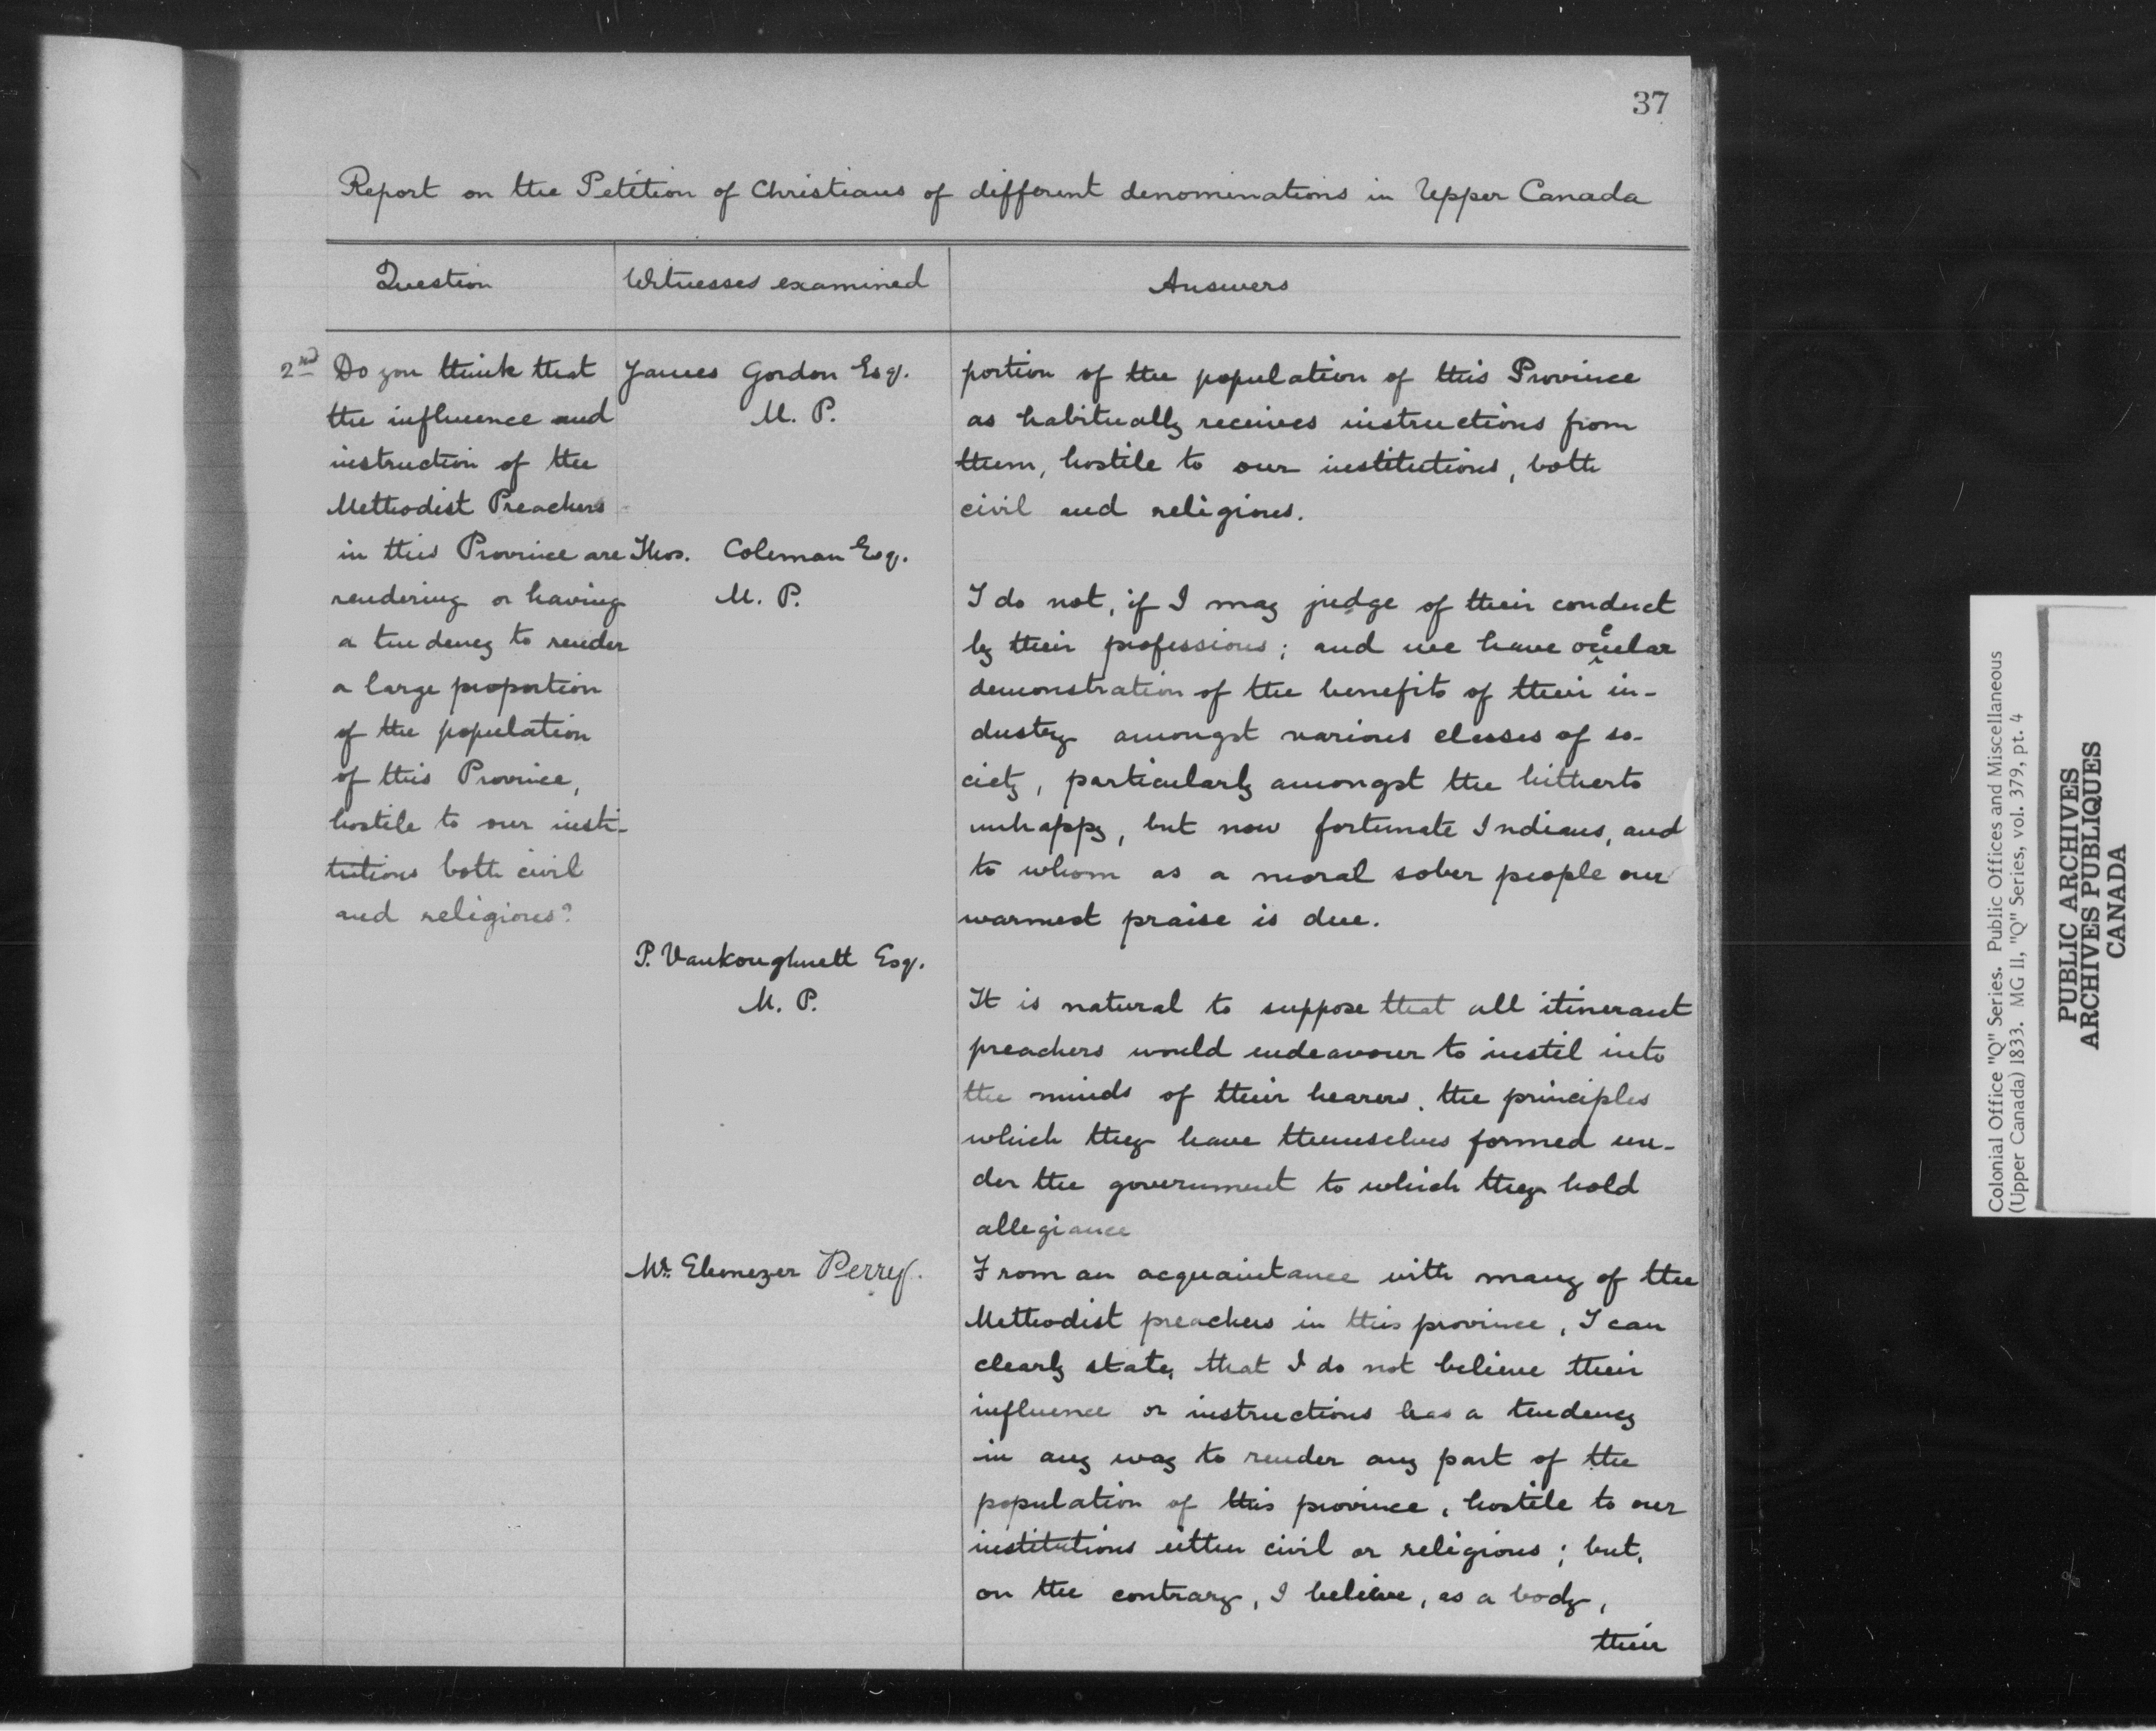 37
Report on the Petition of Christians of different denominations in Upper Canada
Question
Witnesses examined
Answers
2nd Do you think that
the influence and
instruction of the
Methodist Preachers
in this Province are
rendering or having
a tendency to render
a large proportion
of the population
of this Province,
hostile to our insti-
tutions both civil
and religious?
James Gordon Esq.
M. P.
portion of the population of this Province
as habitually receives instructions from
them, hostile to our institutions, both
civil and religious.
Thos. Coleman Esq.
M. P.
I do not, if I may judge of their conduct
by their professions; and we have ocular
demonstration of the benefits of their in-
dustry amongst various classes of so-
ciety, particularly amongst the hitherto
unhappy, but now fortunate Indians, and
to whom as a moral sober people our
warmest praise is due.
P. Vankoughnett Esq.
M. P.
It is natural to suppose that all itinerant
preachers would endeavour to instil into
the minds of their hearers, the principles
which they have themselves formed un-
der the government to which they hold
allegiance
Mr. Ebenezer Perry.
From an acquaintance with many of the
Methodist preachers in this province, I can
clearly state, that I do not believe their
influence or instructions has a tendency
in any way to render any part of the
population of this province, hostile to our
institutions either civil or religious; but,
on the contrary, I believe, as a body,
their
Colonial Office "Q" Series. Public Offices and Miscellaneous
(Upper Canada) 1833. MG 11, "Q" Series, vol. 379, pt. 4
PUBLIC ARCHIVES
ARCHIVES PUBLIQUES
CANADA